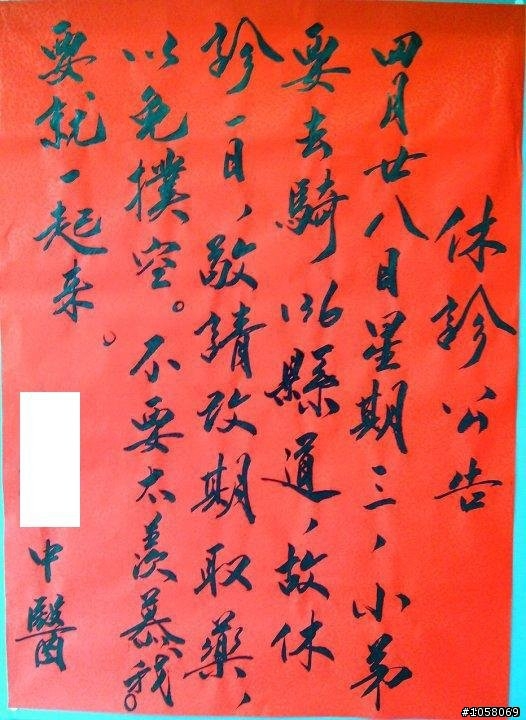 休診公告
四月廿八日星期三，小弟
要去騎136縣道，故休
診一日，敬請改期取藥，
以免撲空。不要太羨慕我。
要就一起来。
中醫
#1058069